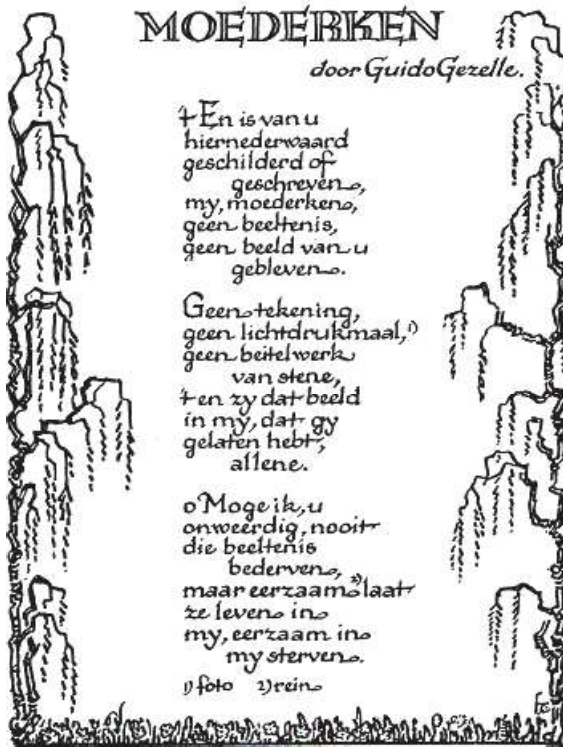 MOEDERKEN
door Guido Gezelle.
't En is van u
hiernederwaard
geschilderd of
geschreven,
my, moederken,
geen beeltenis,
geen beeld van u
gebleven.
Geen tekening,
geen lichtdrukmaal,¹⁾
geen beitelwerk
van stene,
't en zy dat beeld
in my, dat gy
gelaten hebt,
allene.
o Moge ik, u
onweerdig, nooit
die beeltenis
bederven,
maar eerzaam²⁾ laat
ze leven in
my, eerzaam in
my sterven.
1) foto 2) rein